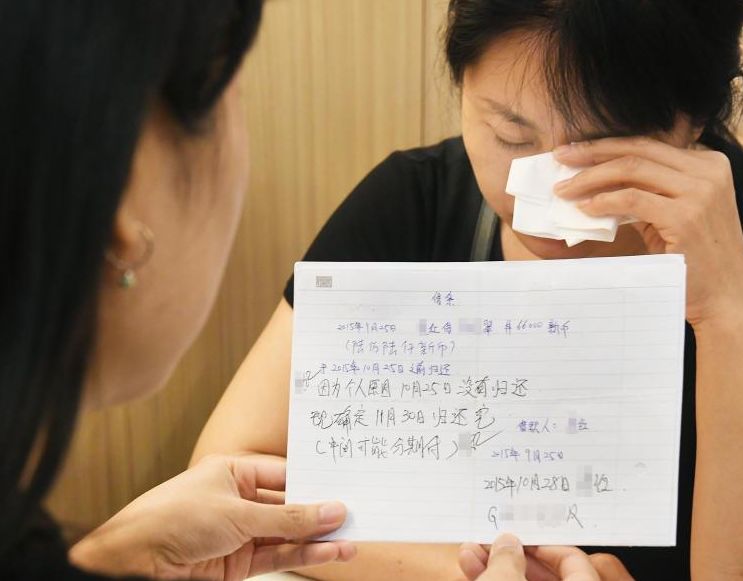 借条
2015年9月25日 借 共66000新币
(陆万陆仟新币)
于2015年10月25日前归还
因为个人原因10月25日没有归还
现确定11月30日归还完
(中间可能分期付)
借款人:
2015年9月25日
2015年10月28日
G R